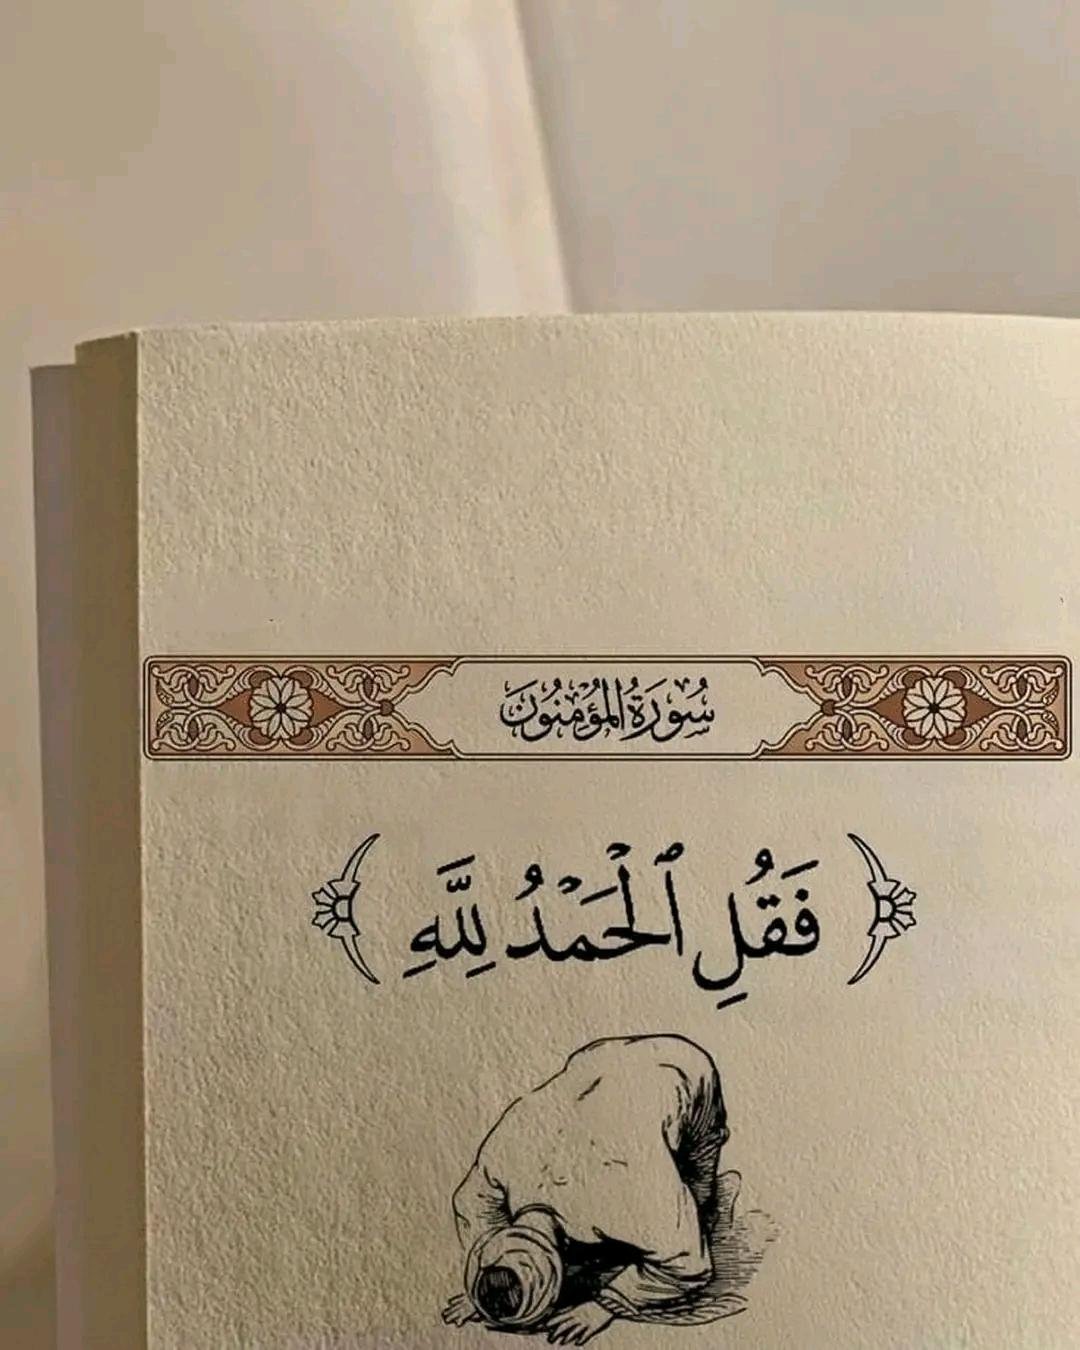 سُورَةُ المُؤْمِنُونَ
﴿ فَقُلِ ٱلْحَمْدُ لِلَّهِ ﴾